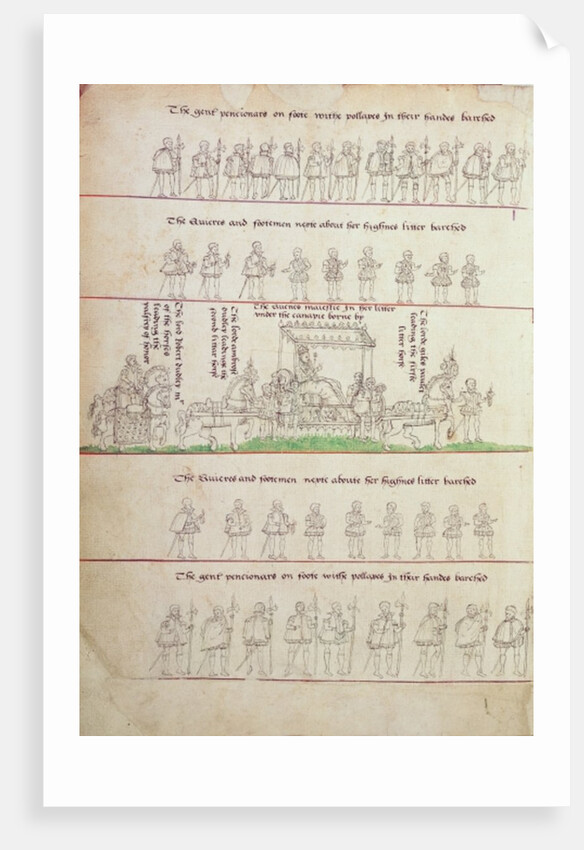 The gent pencionars on foote withe pollaxes in their handes barehed
The Quieres and footemen nexte aboute her highnes litter barehed
The lord Robert dudley mr
of the horsse
leading the
palfrey of honor
The lorde ambrose
dudley leading the
second litter horsse
The Quenes maiestie in her litter
under the canapie borne by
The lorde giles paulet
leading the firste
litter horse
The Quieres and footemen nexte aboute her highnes litter barehed
The gent pencionars on foote withe pollaxes in their handes barehed